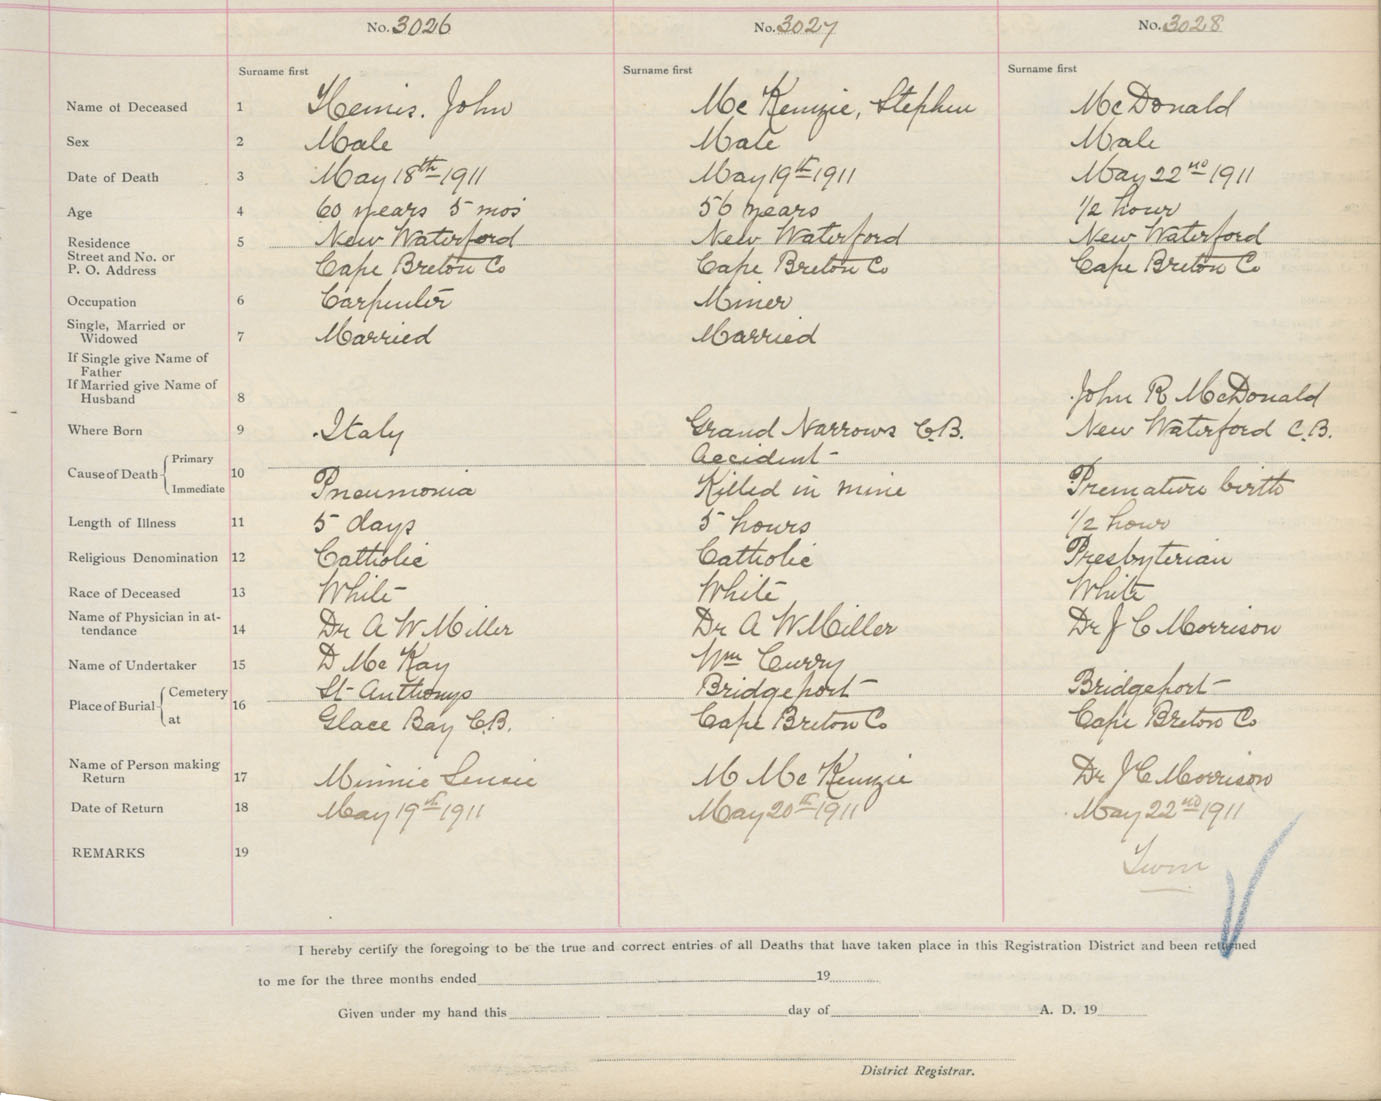 No. 3026 No. 3027 No. 3028
Surname first Surname first Surname first
Name of Deceased 1 John Mc Kenzie, Stephen McDonald
Sex 2 Male Male Male
Date of Death 3 May 18th 1911 May 19th 1911 May 22nd 1911
Age 4 60 years 5 mos 56 years 1/2 hour
Residence 5 New Waterford New Waterford New Waterford
Street and No. or
P. O. Address Cape Breton Co Cape Breton Co Cape Breton Co
Occupation 6 Carpenter Miner
Single, Married or
Widowed 7 Married Married
If Single give Name of
Father
If Married give Name of
Husband 8 John R McDonald
Where Born 9 Italy Grand Narrows C.B. New Waterford C.B.
Cause of Death Primary 10 Accident
Immediate Pneumonia Killed in mine Premature birth
Length of Illness 11 5 days 5 hours 1/2 hour
Religious Denomination 12 Catholic Catholic Presbyterian
Race of Deceased 13 White White White
Name of Physician in at-
tendance 14 Dr A W Miller Dr A W Miller Dr J C Morrison
Name of Undertaker 15 D Mc Kay Wm Curry
Place of Burial Cemetery 16 St Anthonys Bridgeport Bridgeport
at Glace Bay C.B. Cape Breton Co Cape Breton Co
Name of Person making
Return 17 Minnie M Mc Kenzie Dr J C Morrison
Date of Return 18 May 19th 1911 May 20th 1911 May 22nd 1911
REMARKS 19 Twin
I hereby certify the foregoing to be the true and correct entries of all Deaths that have taken place in this Registration District and been returned
to me for the three months ended 19
Given under my hand this day of A. D. 19
District Registrar.